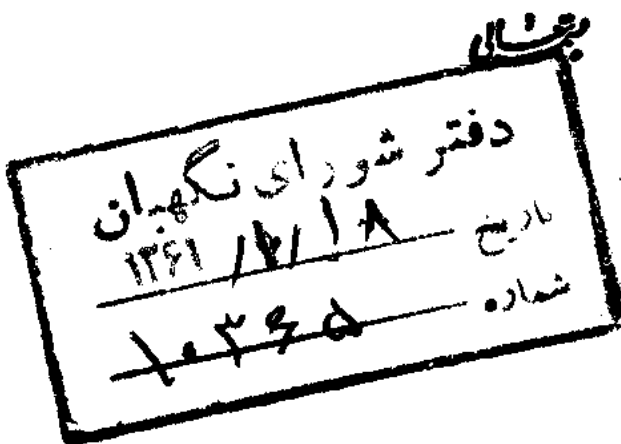 بسمه تعالی
دفتر شورای نگهبان
تاریخ ۱۳۶۱/۲/۱۸
شماره ۱۰۳۶۵